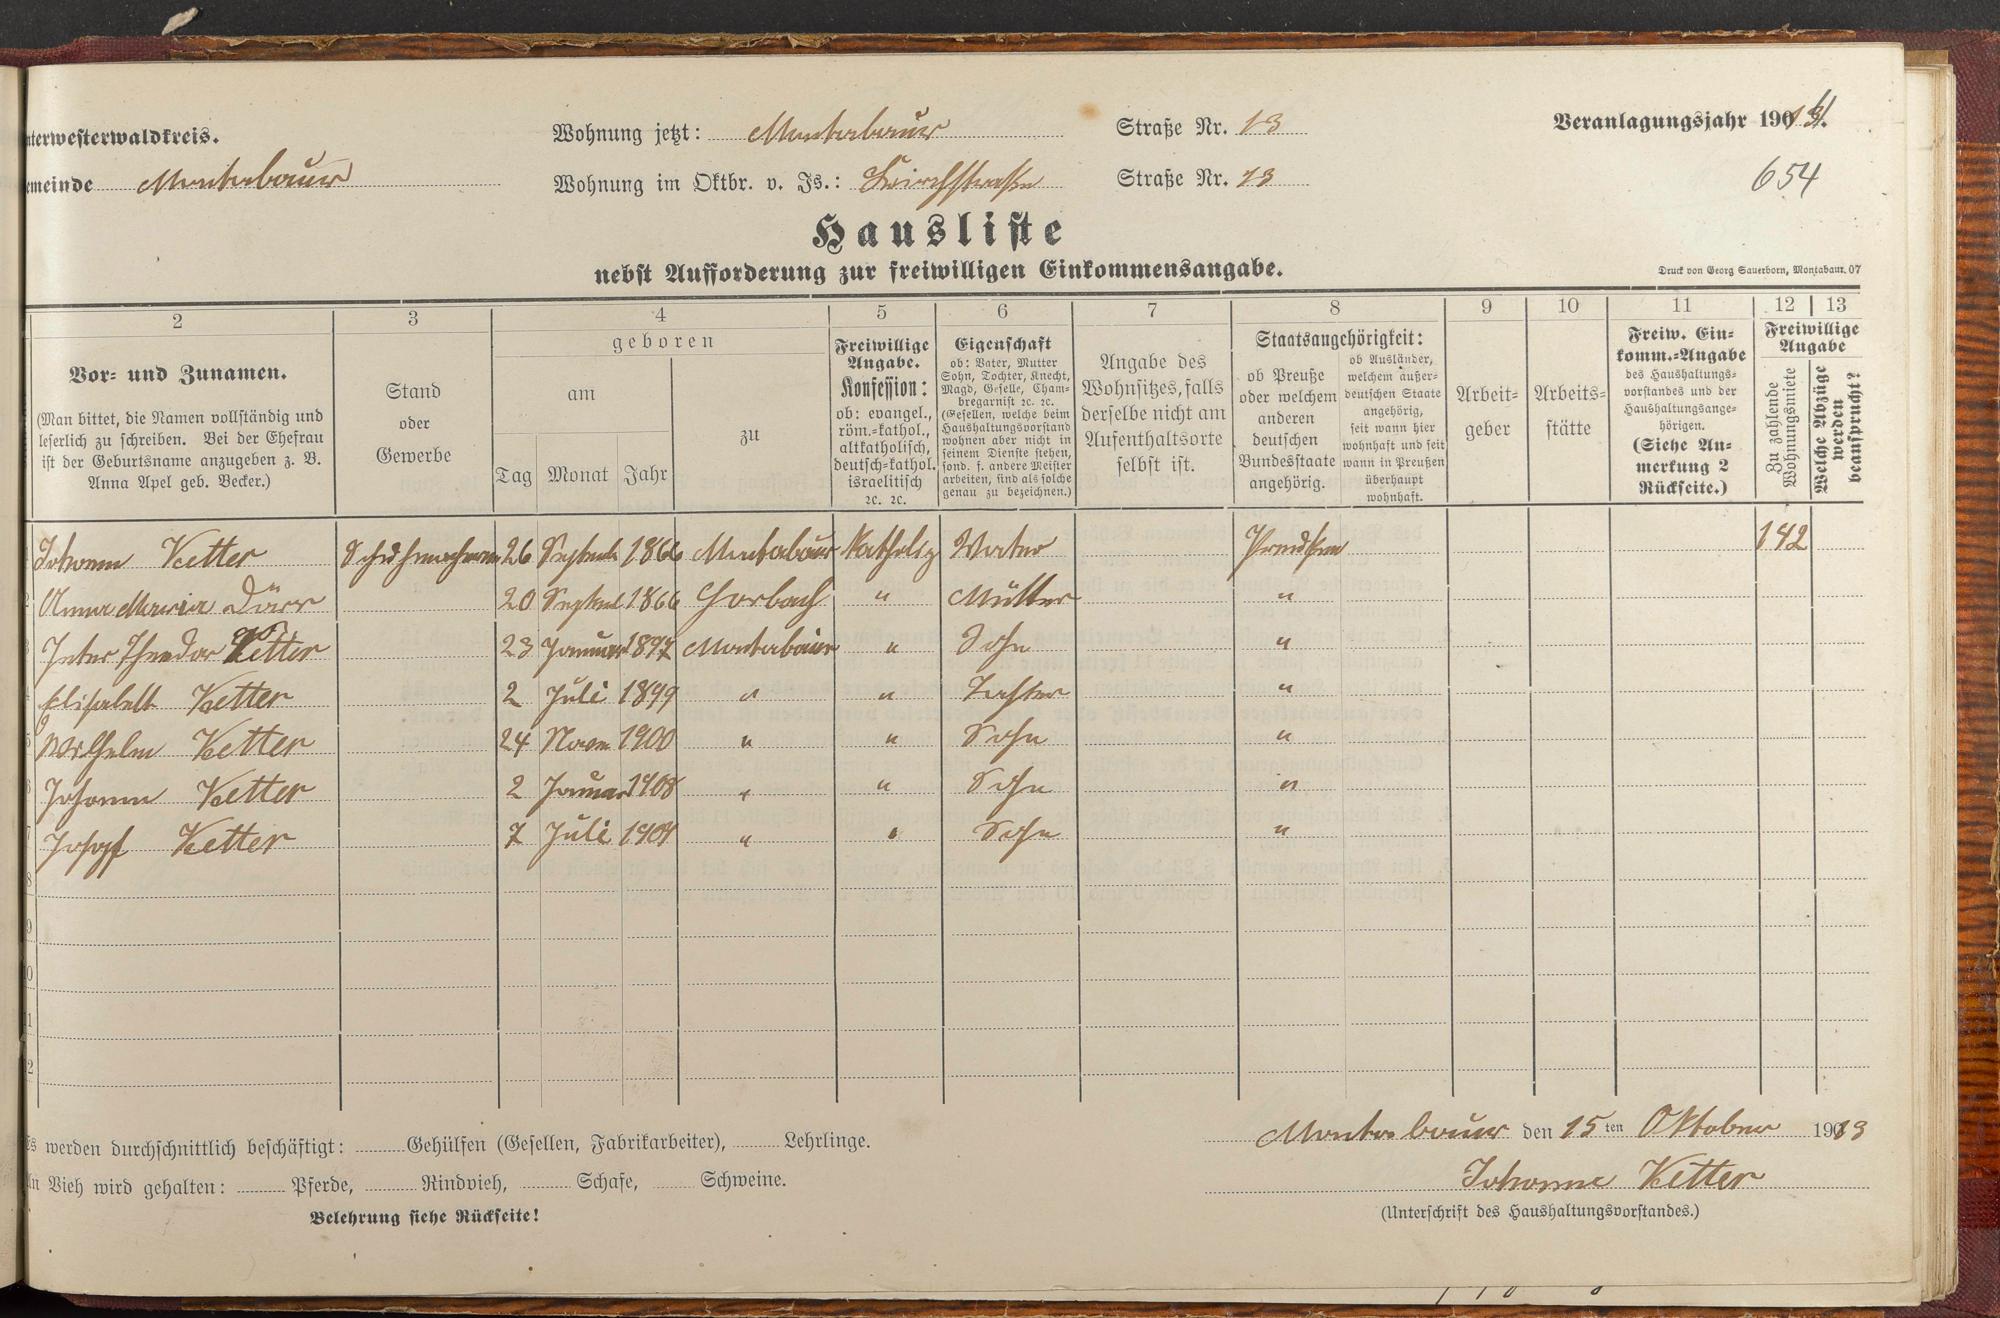 nterwesterwaldkreis.
Wohnung jetzt: Montabaur Straße Nr. 13
Veranlagungsjahr 19014.
emeinde Montabaur
Wohnung im Oktbr. v. Js.: Kirchstraße Straße Nr. 13
654
Hausliste
nebst Aufforderung zur freiwilligen Einkommensangabe.
Druck von Georg Sauerborn, Montabaur. 07
2 3 4 5 6 7 8 9 10 11 12 13
Vor- und Zunamen.
(Man bittet, die Namen vollständig und
leserlich zu schreiben. Bei der Ehefrau
ist der Geburtsname anzugeben z. B.
Anna Apel geb. Becker.)
Stand
oder
Gewerbe
geboren
am
zu
Tag Monat Jahr
Freiwillige
Angabe.
Konfession:
ob: evangel.,
röm.-kathol.,
altkatholisch,
deutsch-kathol.
israelitisch
ꝛc. ꝛc.
Eigenschaft
ob: Vater, Mutter
Sohn, Tochter, Knecht,
Magd, Geselle, Cham-
bregarnist ꝛc. ꝛc.
(Gesellen, welche beim
Haushaltungsvorstand
wohnen aber nicht in
seinem Dienste stehen,
sond. f. andere Meister
arbeiten, sind als solche
genau zu bezeichnen.)
Angabe des
Wohnsitzes, falls
derselbe nicht am
Aufenthaltsorte
selbst ist.
Staatsangehörigkeit:
ob Preuße
oder welchem
anderen
deutschen
Bundesstaate
angehörig.
ob Ausländer,
welchem außer-
deutschen Staate
angehörig,
seit wann hier
wohnhaft und seit
wann in Preußen
überhaupt
wohnhaft.
Arbeit-
geber
Arbeits-
stätte
Freiw. Ein-
komm.-Angabe
des Haushaltungs-
vorstandes und der
Haushaltungsange-
hörigen.
(Siehe An-
merkung 2
Rückseite.)
Freiwillige
Angabe
Zu zahlende
Wohnungsmiete
Welche Abzüge
werden
beansprucht?
Johann Ketter Schuhmacher 26 Septemb 1866 Montabaur Katholig Vater Preußen 142
2 Anna Maria Dörr 20 Septemb 1866 Horbach " Mutter "
3 Peter Theodor Ketter 23 Januar 1897 Montabaur " Sohn "
4 Elisabeth Ketter 2 Juli 1899 " " Tochter "
5 Wilhelm Ketter 24 Novem 1900 " " Sohn "
6 Johann Ketter 2 Januar 1908 " " Sohn "
7 Josepf Ketter 7 Juli 1904 " " Sohn "
8
9
0
1
2
Es werden durchschnittlich beschäftigt: Gehülfen (Gesellen, Fabrikarbeiter), Lehrlinge.
An Vieh wird gehalten: Pferde, Rindvieh, Schafe, Schweine.
Belehrung siehe Rückseite!
Montabaur den 15 ten Oktober 1913
Johann Ketter
(Unterschrift des Haushaltungsvorstandes.)